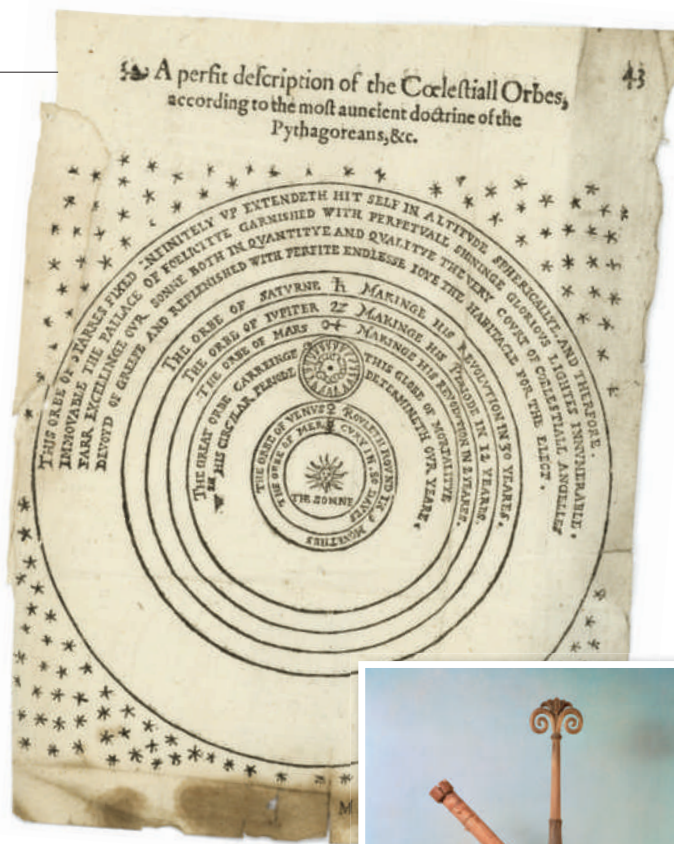 A perfit deſcription of the Cœleſtiall Orbes,
43
according to the moſt auncient doctrine of the
Pythagoreans, &c.
THIS ORBE OF STARRES FIXED INFINITELY VP EXTENDETH HIT SELF IN ALTITVDE SPHERICALLYE, AND THERFORE.
IMMOVABLE THE PALLACE OF FOELICITYE GARNISHED WITH PERPETVALL SHININGE GLORIOVS LIGHTES INNVMERABLE.
FARR EXCELLINGE OVR SONNE BOTH IN QVANTITYE AND QVALITYE THE VERY COVRT OF COELESTIALL ANGELLES
DEVOYD OF GREEFE AND REPLENISHED WITH PERFITE ENDLESSE IOYE THE HABITACLE FOR THE ELECT.
THE ORBE OF SATVRNE ♄ MAKINGE HIS REVOLVTION IN 30 YEARES.
THE ORBE OF IVPITER ♃ MAKINGE HIS PERIODE IN 12 YEARES.
THE ORBE OF MARS ♂ MAKINGE HIS REVOLVTION IN 2 YEARES.
THE GREAT ORBE CARREINGE THIS GLOBE OF MORTALITYE
HIS CIRCVLAR PERIODE DETERMINETH OVR YEARE.
THE ORBE OF VENVS ♀ ROVLETH ROVND IN 9 MONETHES
THE ORBE OF MERCVRY IN 80 DAYES
THE SONNE
M